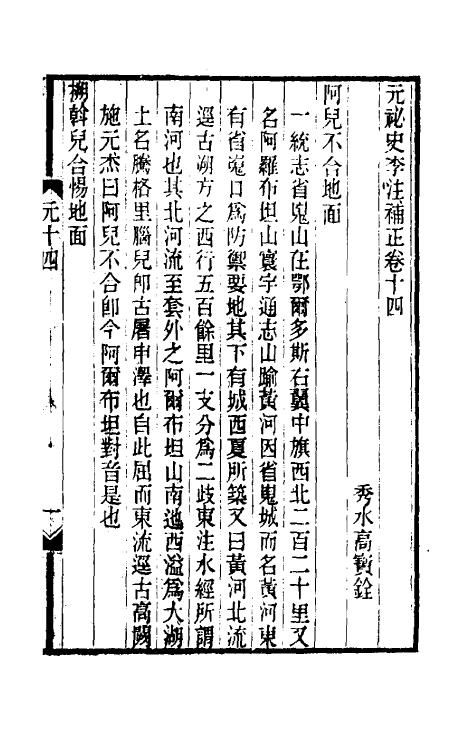 元祕史李注補正卷十四
秀水高寶銓
阿兒不合地面
一統志省嵬山在鄂爾多斯右翼中旗西北二百二十里又
名阿羅布坦山寰宇通志山踰黃河因省嵬城而名黃河東
有省嵬口爲防禦要地其下有城西夏所築又曰黃河北流
逕古朔方之西行五百餘里一支分爲二歧東注水經所謂
南河也其北河流至套外之阿爾布坦山南迤西溢爲大湖
土名騰格里腦兒卽古屠申澤也自此屈而東流逕古高闕
施元杰曰阿兒不合卽今阿爾布坦對音是也
搠斡兒合惕地面
元十四
一